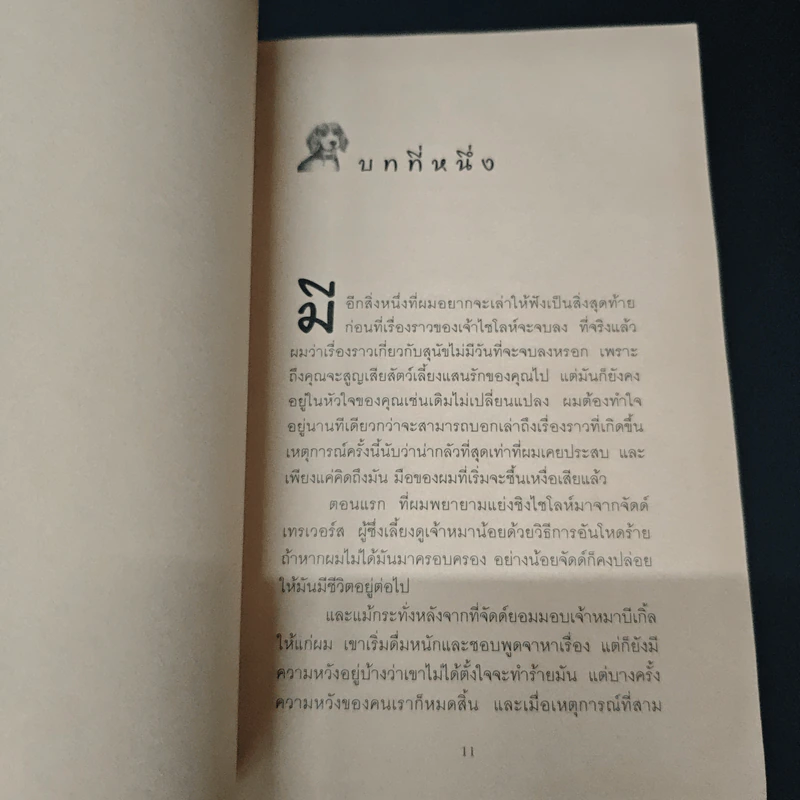 บทที่หนึ่ง
มีอีกสิ่งหนึ่งที่ผมอยากจะเล่าให้ฟังเป็นสิ่งสุดท้าย
ก่อนที่เรื่องราวของเจ้าไชโลห์จะจบลง ที่จริงแล้ว
ผมว่าเรื่องราวเกี่ยวกับสุนัขไม่มีวันที่จะจบลงหรอก เพราะ
ถึงคุณจะสูญเสียสัตว์เลี้ยงแสนรักของคุณไป แต่มันก็ยังคง
อยู่ในหัวใจของคุณเช่นเดิมไม่เปลี่ยนแปลง ผมต้องทำใจ
อยู่นานทีเดียวกว่าจะสามารถบอกเล่าถึงเรื่องราวที่เกิดขึ้น
เหตุการณ์ครั้งนี้นับว่าน่ากลัวที่สุดเท่าที่ผมเคยประสบ และ
เพียงแค่คิดถึงมัน มือของผมก็เริ่มจะชื้นเหงื่อเสียแล้ว
ตอนแรก ที่ผมพยายามแย่งชิงไชโลห์มาจากจัดด์
เทรเวอร์ส ผู้ซึ่งเลี้ยงดูเจ้าหมาน้อยด้วยวิธีการอันโหดร้าย
ถ้าหากผมไม่ได้มันมาครอบครอง อย่างน้อยจัดด์ก็คงปล่อย
ให้มันมีชีวิตอยู่ต่อไป
และแม้กระทั่งหลังจากที่จัดด์ยอมมอบเจ้าหมาบีเกิ้ล
ให้แก่ผม เขาเริ่มดื่มหนักและชอบพูดจาหาเรื่อง แต่ก็ยังมี
ความหวังอยู่บ้างว่าเขาไม่ได้ตั้งใจจะทำร้ายมัน แต่บางครั้ง
ความหวังของคนเราก็หมดสิ้น และเมื่อเหตุการณ์ที่สาม
11